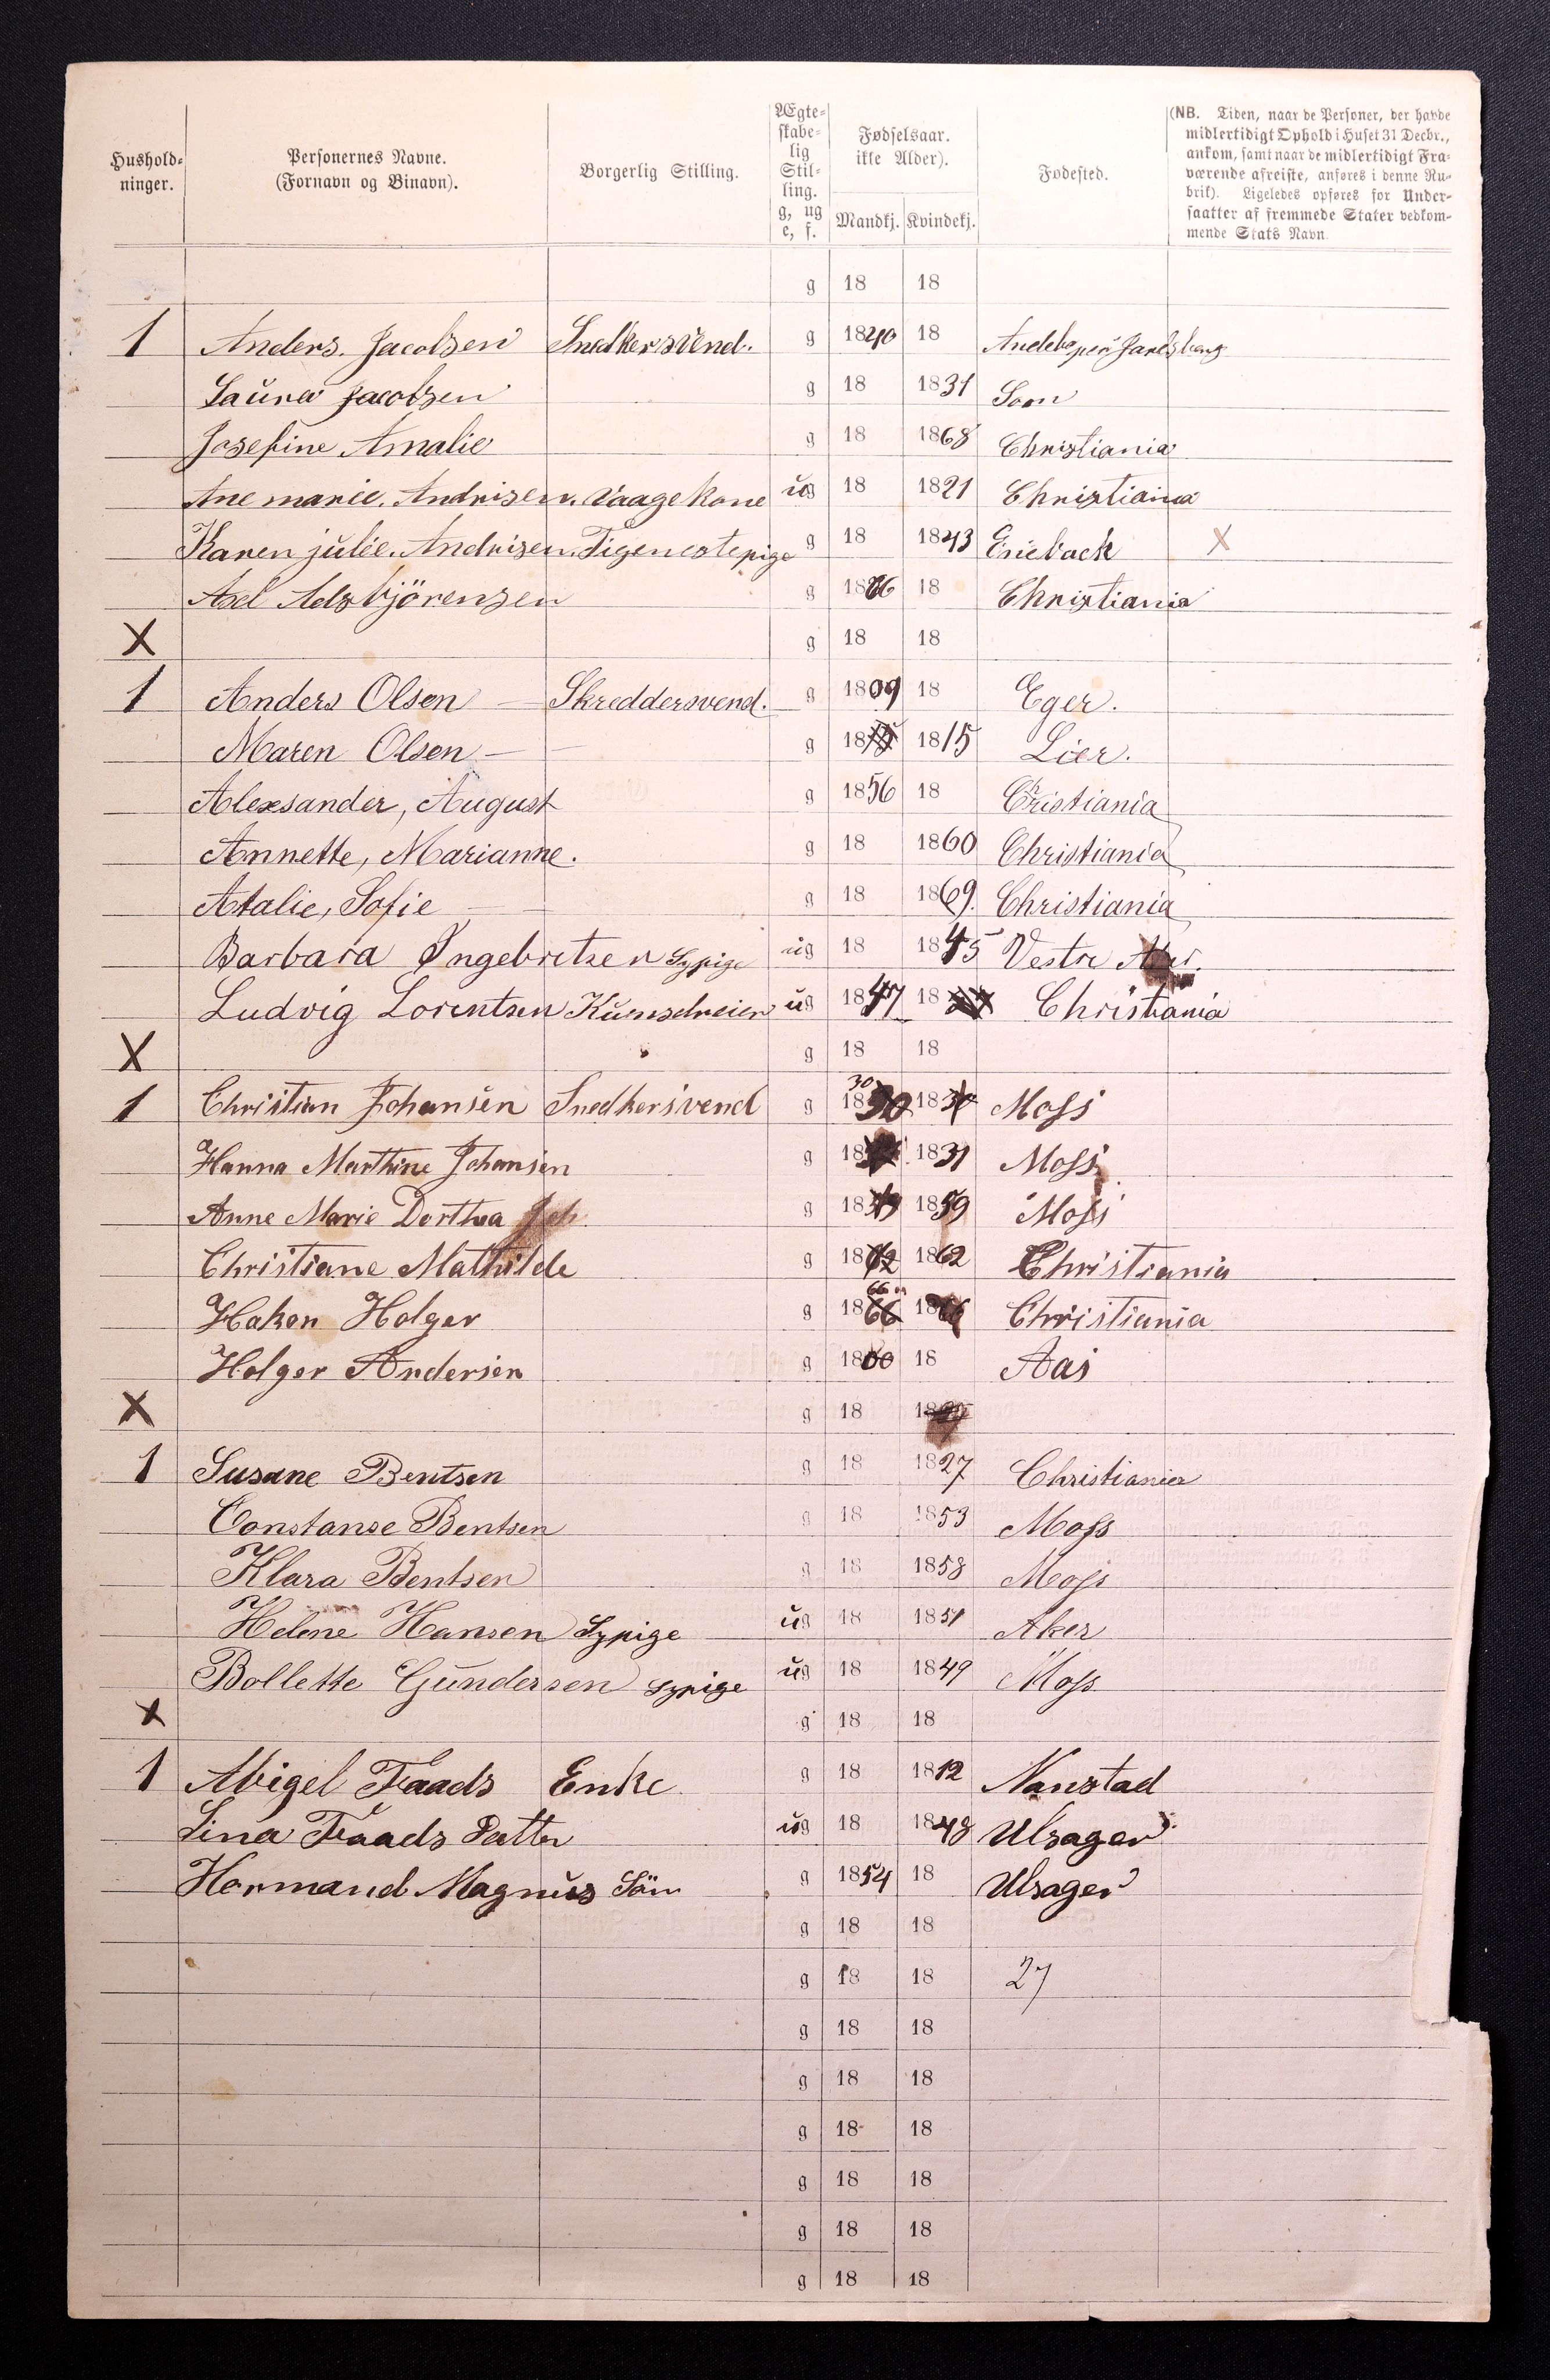 Hushold-
ninger.
Personernes Navne.
(Fornavn og Binavn).
Borgerlig Stilling.
Ægte-
skabe-
lig
Stil-
ling.
g, ug
e, f.
Fødselsaar.
ikke Alder).
Mandkj. Kvindekj.
Fødested.
(NB. Tiden, naar de Personer, der havde
midlertidigt Ophold i Huset 31 Decbr.,
ankom, samt naar de midlertidigt Fra-
værende afreiste, anføres i denne Ru-
brik). Ligeledes opføres for Under-
saatter af fremmede Stater vedkom-
mende Stats Navn.
g 18 18
1 Anders. Jacobsen Snedkersvend. g 1840 18 Jarlsberg
Laura Jacobsen g 18 1831 Soon
Josefine Amalie g 18 1868 Christiania
Ane marie. Andrisen. Vaagekone ug 18 1821 Christiania
Karen julie. Andrisen. Tigenestepige g 18 1843 Enieback X
Axel Adsbjörensen g 18 18 Christiania
X g 18 18
1 Anders Olsen Skreddersvend. g 1809 18 Eger.
Maren Olsen g 18 1815 Lier.
Alexsander, August g 1856 18 Cristiania
Annette, Marianne. g 18 1860 Christiania
Atalie, Sofie g 18 1869. Christiania
Barbara Ingebretsen Sypige ug 18 1845 Vestre
Ludvig Lorentsen Kunsdreier ug 1847 18 Christiania
X g 18 18
1 Christian Johansen Snedkersvend g 30 18 18 Moss
Hanna Marthine Johansen g 18 1831 Moss
Anne Marie Dorthea Joh. g 18 1859 Moss
Christiane Mathilde g 18 1862 Christiania
Hakon Holger g 66 1866 18 Christiania
Holger Andersen g 18 18 Aas
X g 18 18
1 Susane Bentsen g 18 1827 Christiania
Constanse Bentsen g 18 1853 Moss
Klara Bentsen g 18 1858 Moss
Helene Hansen Sypige ug 18 1851 Aker
Bollette Gundersen sypige ug 18 1849 Moss
X g 18 18
1 Abigel Faads Enke g 18 1812 Nanstad
Lina Faads Datter ug 18 1848 Ulsager
Hermand Magnus Sön g 1854 18 Ulsager
g 18 18
g 18 18 27
g 18 18
g 18 18
g 18 18
g 18 18
g 18 18
g 18 18